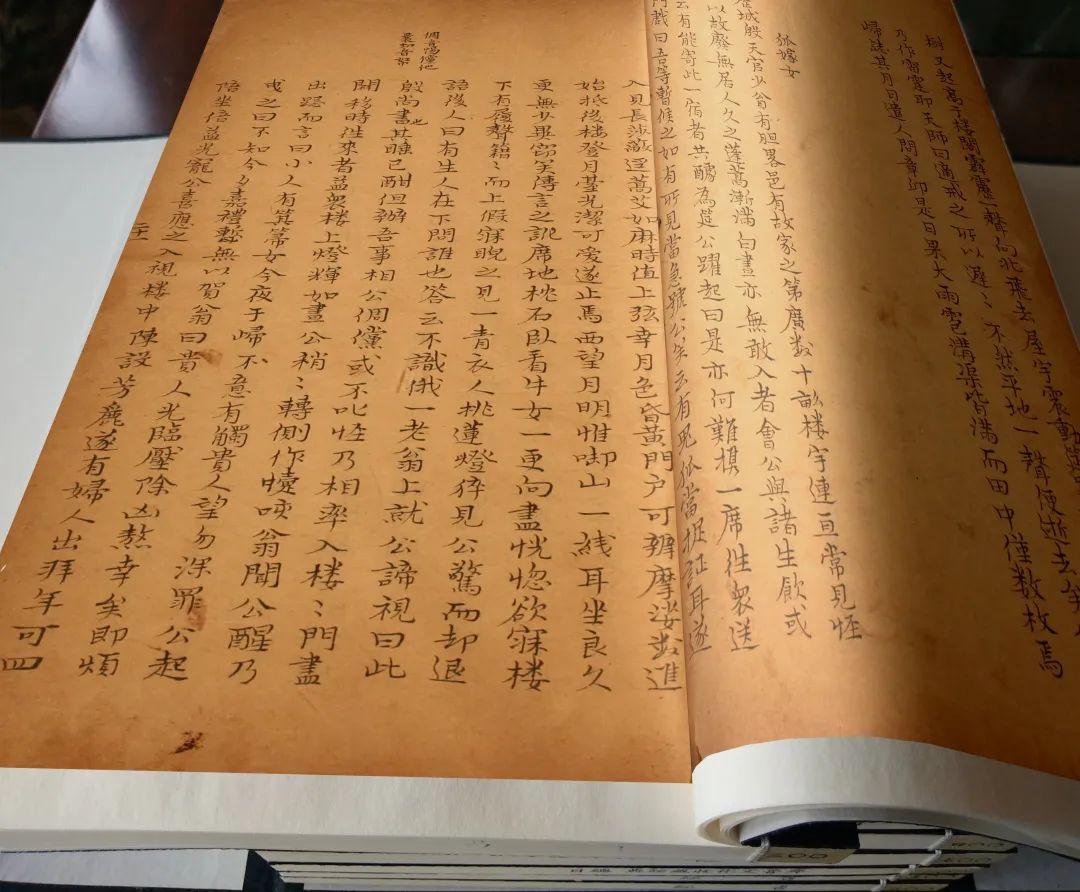 樹又起高于樓聞霹靂一聲向北飛去屋宇震動
乃作雷霆即天師曰適戒之所以遲〻不然平地一聲便逝去矣
歸誌其月日遣人問章邱是日果大雨雹溝渠皆滿而田中僅数枚焉
狐嫁女
歷城殷天官少翁有胆畧邑有故家之第廣数十畝楼宇連亘常見怪
以故廢無居人久之蓬蒿漸滿白晝亦無敢入者會公與諸生飲或
云有能寄此一宿者共醵為筵公躍起曰是亦何難携一席往衆送
門戲曰吾等暫候之如有所見當急號公笑云有鬼狐當捉証耳遂
入見長莎蔽逕蒿艾如麻時值上弦幸月色昏黄門户可辨摩娑数進
始抵後楼登月臺光潔可愛遂止焉西望月明惟啣山一线耳坐良久
更無少異竊笑傳言之訛席地枕石臥看牛女一更向盡恍惚欲寐楼
下有履聲籍〻而上假寐睨之見一青衣人挑蓮燈猝見公驚而却退
語後人曰有生人在下問誰也答云不識俄一老翁上就公諦視曰此
殷尚書也其睡已酣但辦吾事相公倜儻或不叱怪乃相率入楼〻門盡
開移時徃來者益衆楼上燈輝如晝公稍〻轉側作嚏咳翁聞公醒乃
出跽而言曰小人有箕箒女今夜于歸不意有觸貴人望勿深罪公起
曳之曰不知今夕嘉禮慙無以賀翁曰貴人光臨壓除凶煞幸矣即煩
陪坐倍益光寵公喜應之入視楼中陳設芳麗遂有婦人出拜年可四